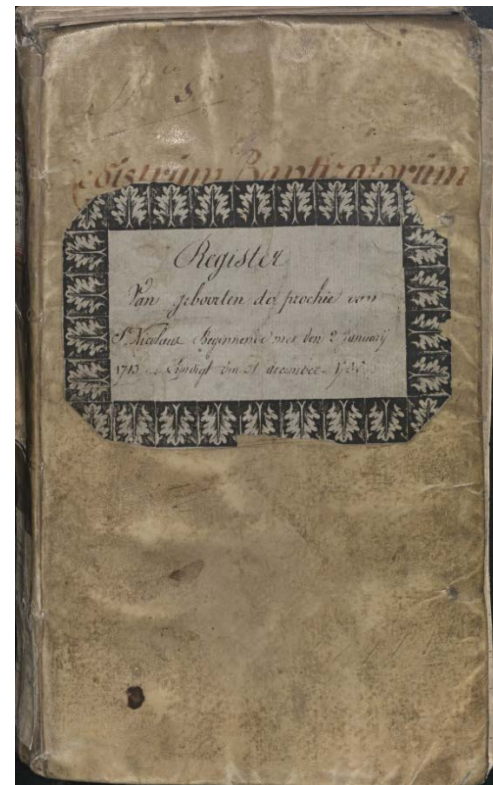 Registrum Baptizatorium
Register
Van geboorten der prochie van
St. Nicolaus Beginnende met den 2 January
1713 Eyndigt den 31 december